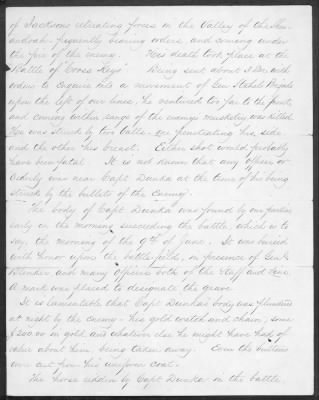 of Jacksons retreating forces in the Valley of the Shen-
andoah frequently bearing orders and coming under
the fire of the enemy. His death took place at the
Battle of "Cross Keys" Being sent about 3 P.M. with
orders to enquire into a movement of Gen Stahels Brigade
upon the left of our lines, he ventured too far to the front,
and coming within range of the enemys musketry was killed.
He was struck by two balls - one penetrating his side
and the other his breast. Either shot would probably
have been fatal. It is not known that any officer or
Orderly was near Capt Dunka at the time of his being
struck by the bullets of the enemy.
The body of Capt Dunka was found by our parties
early on the morning succeeding the battle, which is to
say, the morning of the 9th of June. It was buried
with honor upon the battle field, in presence of Genl
Blenker and many officers both of the Staff and Line.
A mark was placed to designate the grave.
It is lamentable that Capt Dunkas body was plundered
at night by the enemy - his gold watch and chain, some
$200.00 in gold and whatever else he might have had of
value about him, being taken away. Even the buttons
were cut from his uniform coat.
The horse ridden by Capt Dunka in the battle